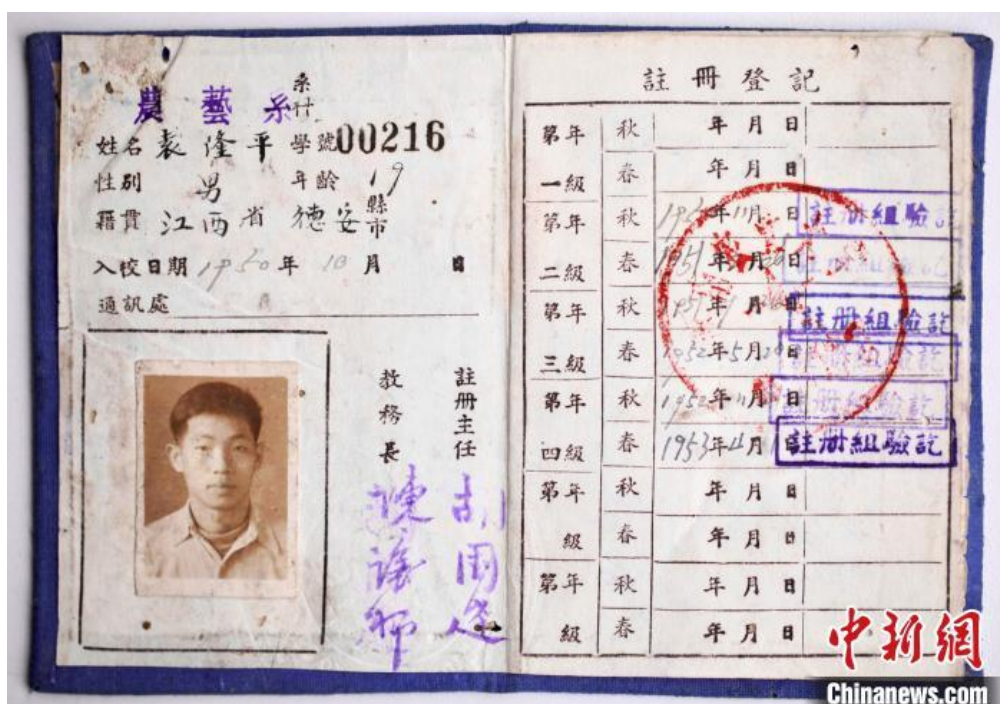 農藝系
系
科
姓名 袁隆平 學號 00216
性別 男 年齡 19
籍貫 江西 省 德安 縣
市
入校日期 1950 年 10 月 日
通訊處
教務長
註冊主任
註冊登記
第年 秋 年 月 日
一級 春 年 月 日
第年 秋 年 11 月 日 註冊組驗訖
二級 春 1951 年 月 日 註冊組驗訖
第年 秋 1951 年 月 日 註冊組驗訖
三級 春 1952 年 5 月 日 註冊組驗訖
第年 秋 1952 年 11 月 日 註冊組驗訖
四級 春 1953 年 4 月 日 註冊組驗訖
第年 秋 年 月 日
級 春 年 月 日
第年 秋 年 月 日
級 春 年 月 日
中新網
Chinanews.com